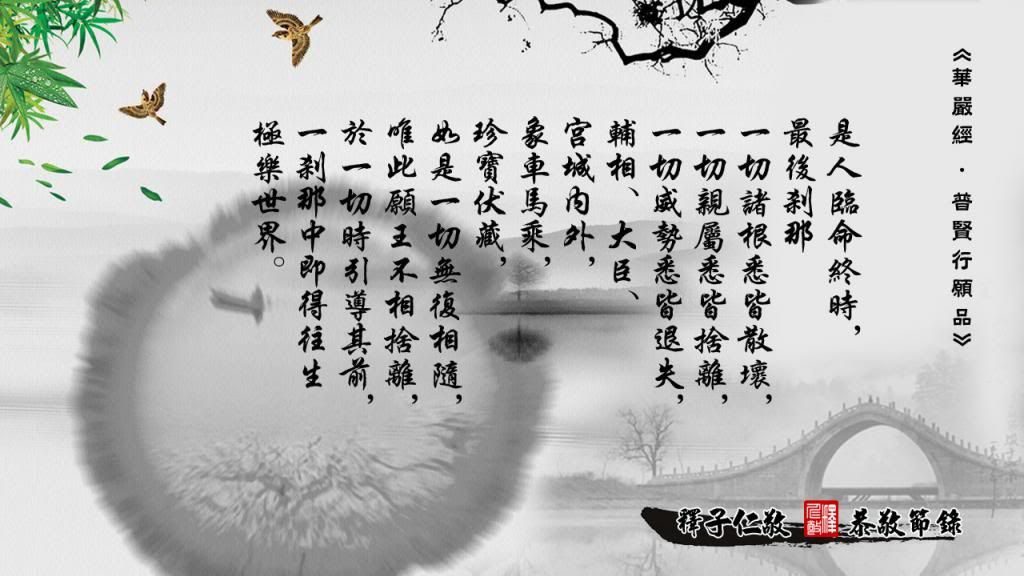 《華嚴經·普賢行願品》
是人臨命終時，
最後剎那
一切諸根悉皆散壞，
一切親屬悉皆捨離，
一切威勢悉皆退失，
輔相、大臣、
宮城內外，
象車馬乘，
珍寶伏藏，
如是一切無復相隨，
唯此願王不相捨離，
於一切時引導其前，
一剎那中即得往生
極樂世界。
釋子仁敬 恭敬節錄